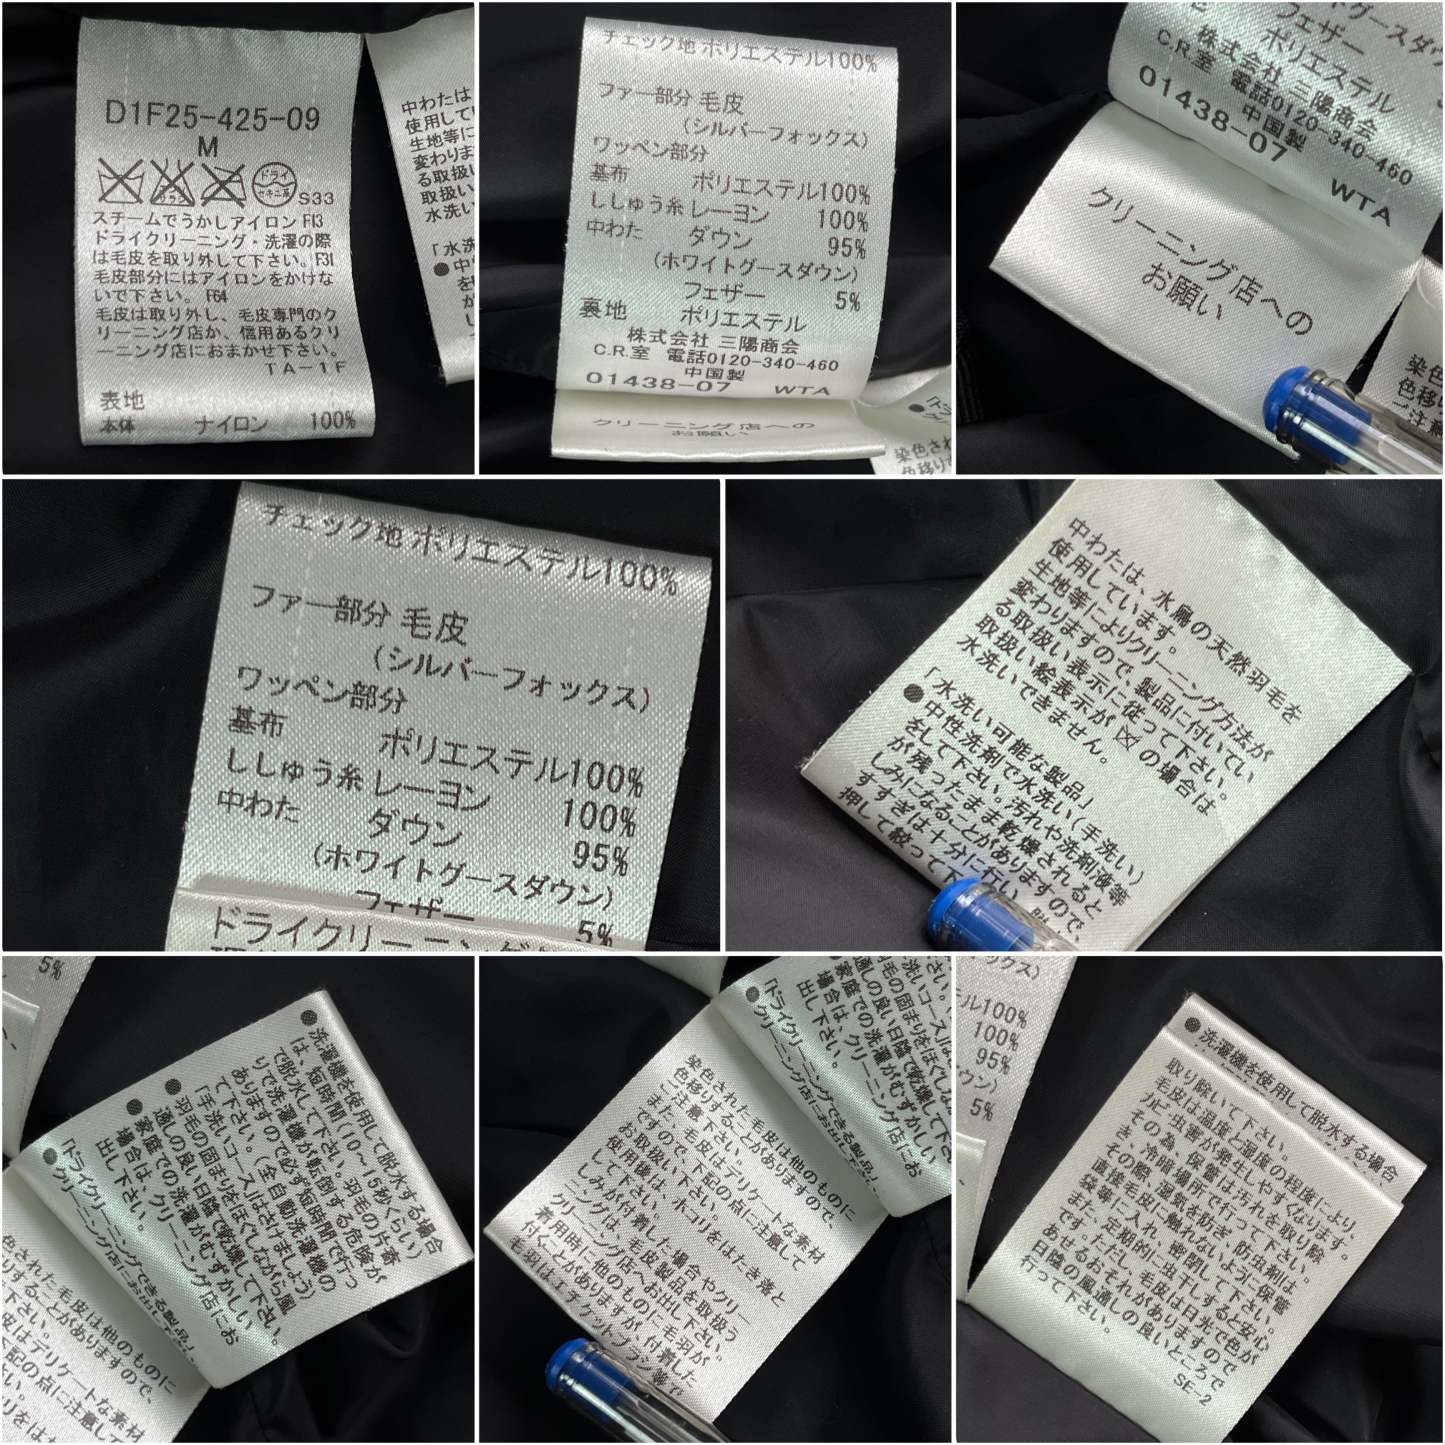 D1F25-425-09
M
ドライ
セキユ系
S33
スチームでうかしアイロン F13
ドライクリーニング・洗濯の際
は毛皮を取り外して下さい。F31
毛皮部分にはアイロンをかけな
いで下さい。 F64
毛皮は取り外し、毛皮専門のク
リーニング店か、信用あるクリ
ーニング店におまかせ下さい。
TA-1F
表地
本体 ナイロン 100%
中わたは
使用して
生地等に
変わりま
る取扱い
取扱い
水洗い
「水洗
チェック地 ポリエステル100%
ファー部分 毛皮
(シルバーフォックス)
ワッペン部分
基布 ポリエステル100%
ししゅう糸 レーヨン 100%
中わた ダウン 95%
(ホワイトグースダウン)
フェザー 5%
裏地 ポリエステル
株式会社 三陽商会
C.R.室 電話0120-340-460
中国製
01438-07 WTA
クリーニング店への
お願い
染色され
色移り
フェザー
ポリエステル
株式会社 三陽商会
C.R.室 電話0120-340-460
中国製
01438-07 WTA
クリーニング店への
お願い
染色
色移り
ご注意
チェック地 ポリエステル100%
ファー部分 毛皮
(シルバーフォックス)
ワッペン部分
基布 ポリエステル100%
ししゅう糸 レーヨン 100%
中わた ダウン 95%
(ホワイトグースダウン)
フェザー 5%
ドライクリーニング
中わたは、水鳥の天然羽毛を
使用しています。
生地等によりクリーニング方法が
変わりますので、製品に付いてい
る取扱い表示に従って下さい。
取扱い絵表示が の場合は
水洗いできません。
「水洗い可能な製品」
●中性洗剤で水洗い(手洗い)
をして下さい。汚れや洗剤液等
が残ったまま乾燥されると
しみになることがありますので、
すすぎは十分に行い、
押して絞って下
5%
●洗濯機を使用して脱水する場合
は、短時間(10~15秒くらい)
で脱水して下さい。羽毛の片寄
りで洗濯機が転倒する危険が
ありますので必ず短時間で行っ
て下さい。(全自動洗濯機の
「手洗いコース」はさけましょう)
●羽毛の固まりをほぐしながら風
通しの良い日陰で乾燥して下さい。
●家庭での洗濯がむずかしい
場合は、クリーニング店にお
出し下さい。
「ドライクリーニングできる製品」
●クリーニング店にお出し下さい。
色された毛皮は他のものに
りすることがありますので、
下さい。
皮はデリケートな素材
記の点に注意して
洗いコース」は
羽毛の固まりをほぐしなが
通しの良い日陰で乾燥して下
家庭での洗濯がむずかしい
場合は、クリーニング店にお
出し下さい。
「ドライクリーニングできる製品」
●クリーニング店にお出し下さい。
染色された毛皮は他のものに
色移りすることがありますので、
ご注意下さい。
また、毛皮はデリケートな素材
ですので、下記の点に注意して
お取扱い下さい。
使用後は、ホコリをはたき落と
して下さい。
しみが付着した場合やクリー
ニングは、毛皮製品を取扱う
クリーニング店へお出し下さい。
着用時に他のものに毛羽が
付くことがありますが、付着した
毛羽はエチケットブラシ等で
クス)
テル100%
100%
95%
ウン)
5%
●洗濯機を使用して脱水する場合
取り除いて下さい。
毛皮は温度と湿度の程度により、
カビ、虫害が発生しやすくなります。
その為、保管は汚れを取り除
き、冷暗場所で行って下さい。
その際、湿気を防ぎ、防虫剤は
直接毛皮に触れないように保管
袋等に入れ、密閉して下さい。
また、定期的に虫干しすると安心
です。ただし、毛皮は日光で色が
あせるおそれがありますので
日陰の風通しの良いところで
行って下さい。
SE-2